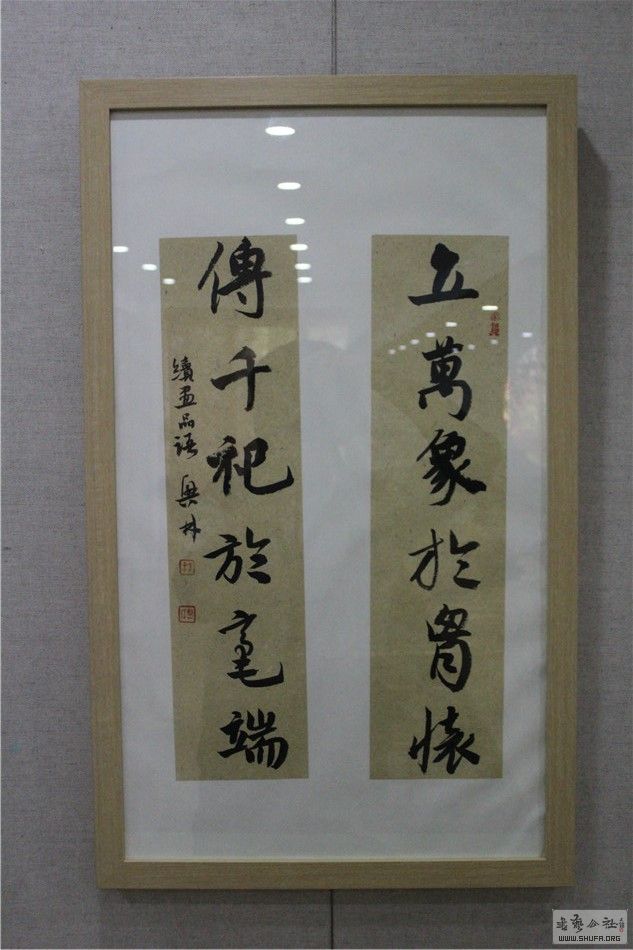 立萬象於胷懷
傳千祀於毫端
續畫品語 興林
WWW.SHUFA.ORG